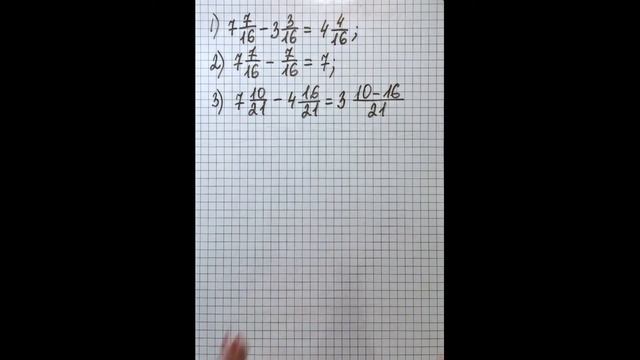 1) 7 7/16 - 3 3/16 = 4 4/16;
2) 7 7/16 - 7/16 = 7;
3) 7 10/21 - 4 16/21 = 3 10-16/21